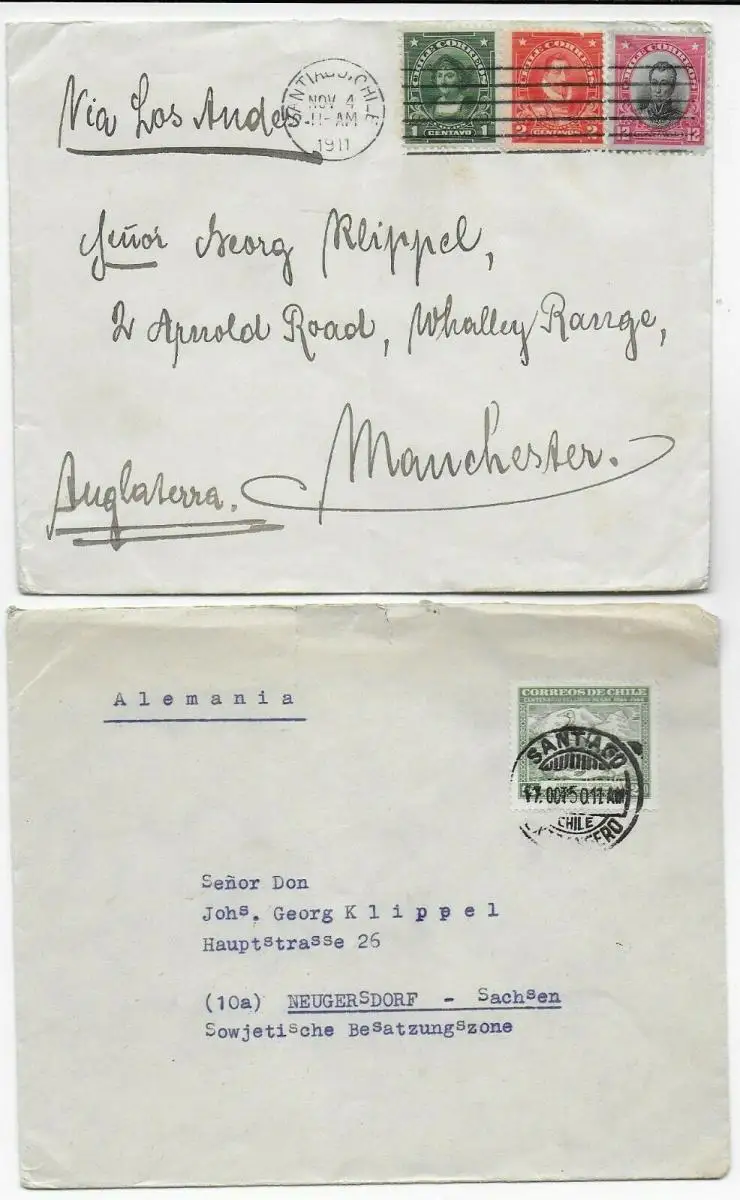 Via Los Andes
SANTIAGO, CHILE
NOV 4
11-AM
1911
CHILE CORREOS
1 CENTAVO 1
CHILE CORREOS
2 CENTAVOS 2
CHILE CORREOS
12 CENTAVOS 12
Señor Georg Klippel,
2 Arnold Road, Whalley Range,
Manchester.
Anglaterra.
Alemania
CORREOS DE CHILE
SANTIAGO
17. OCT 50 11 AM
CHILE
Señor Don
Johs. Georg Klippel
Hauptstrasse 26
(10a) NEUGERSDORF - Sachsen
Sowjetische Besatzungszone